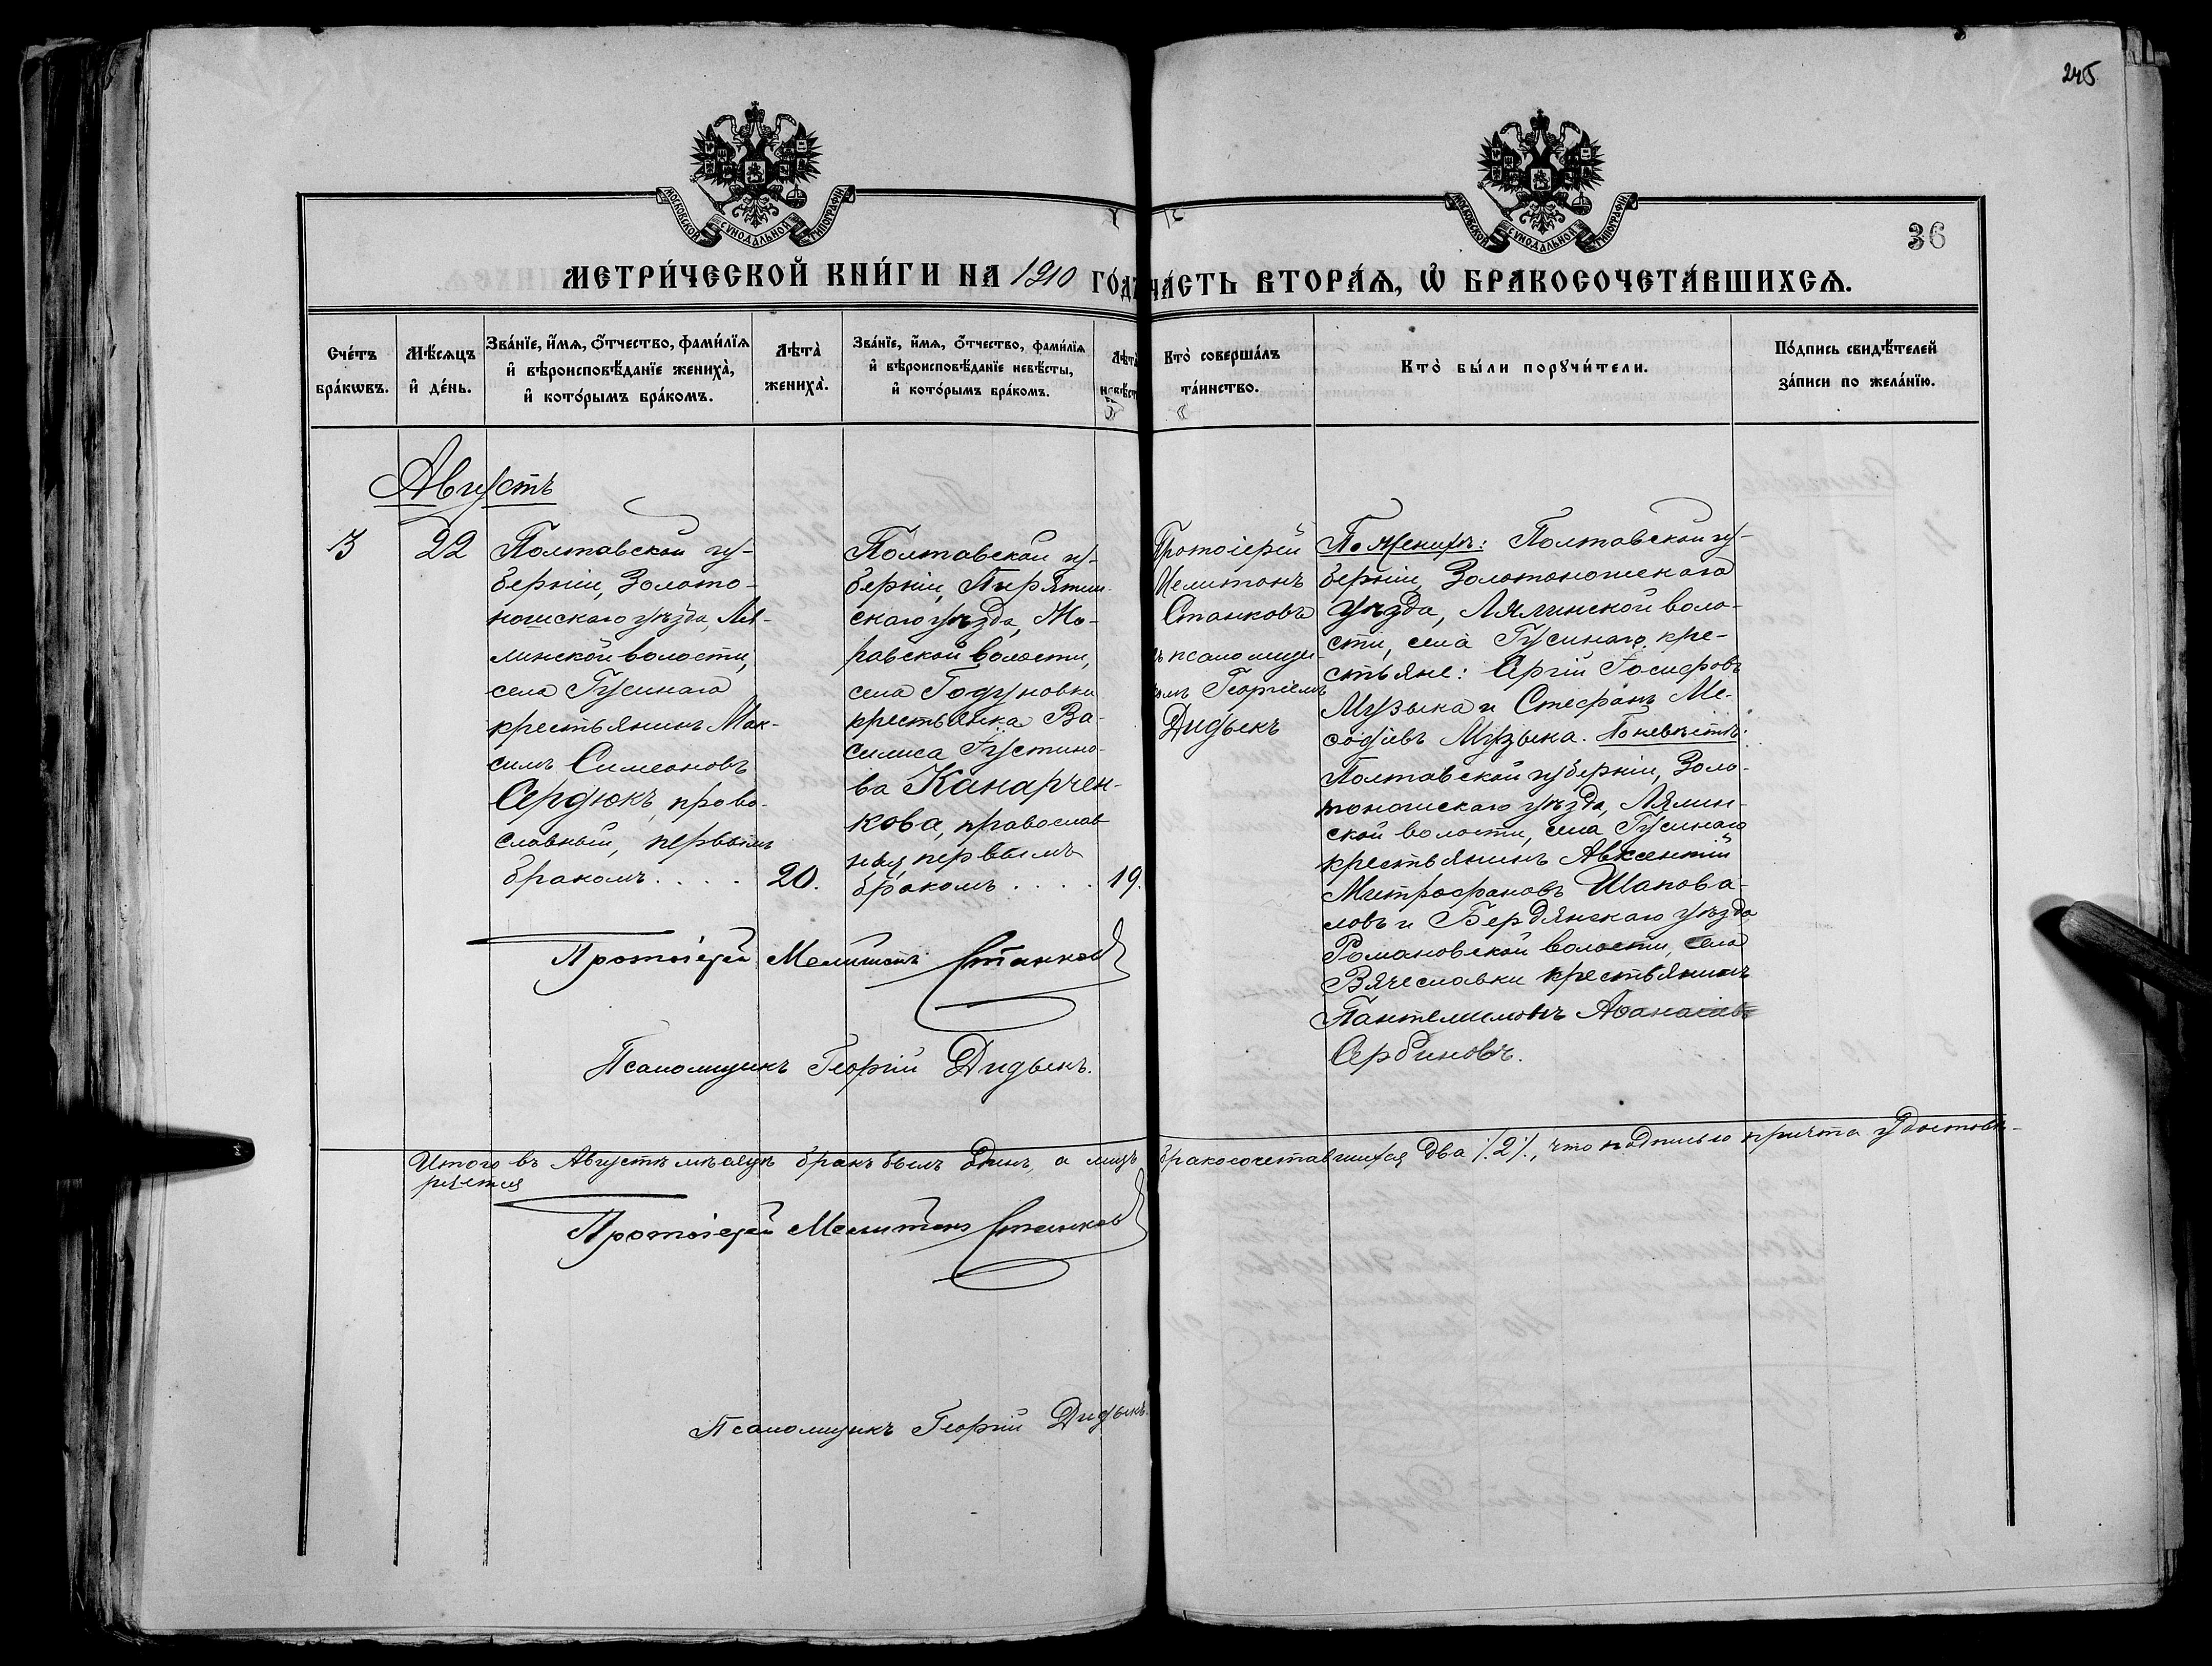 245
МОСКОВСКОЙ СѴНОДАЛЬНОЙ ТИПОГРАФІИ
МОСКОВСКОЙ СѴНОДАЛЬНОЙ ТИПОГРАФІИ
36
МЕТРИ́ЧЕСКОЙ КНИ́ГИ НА 1910 ГО́ДЪ
ЧА́СТЬ ВТОРА́Ѧ, Ѡ҆ БРАКОСОЧЕТА́ВШИХСѦ.
Сче́тъ
бра́кѡвъ.
Мѣ́сѧцъ
и҆ де́нь.
Зва́нїе, и҆́мѧ, ѻ҆́тчество, фами́лїѧ
и҆ вѣроисповѣ́данїе жениха̀,
и҆ кото́рымъ бра́комъ.
Лѣта̀
жениха̀.
Зва́нїе, и҆́мѧ, ѻ҆́тчество, фами́лїѧ
и҆ вѣроисповѣ́данїе невѣ́сты,
и҆ кото́рымъ бра́комъ.
Лѣта̀
невѣст
Кто̀ соверша́лъ
та́инство.
Кто̀ бы́ли порꙋчи́тели.
По́дпись свидѣ́телей
за́писи по жела́нїю.
Августъ
3
22
Полтавской гу-
берніи, Золото-
ношскаго уѣзда, Ля-
линской волости,
села Гусинаго
крестьянинъ Мак-
симъ Симеоновъ
Сердюкъ, право-
славный, первымъ
бракомъ....
20.
Полтавской гу-
берніи, Пирятин-
скаго уѣзда, Ко-
равской волости,
села Годуновки
крестьянка Ва-
силиса Іустино-
ва Канарчен-
кова, православ-
ная, первымъ
бракомъ....
19.
Протоіерей
Мелитонъ
Станковъ
съ псаломщи-
комъ Георгіемъ
Дидыкъ
По женихѣ: Полтавской гу-
берніи, Золотоношскаго
уѣзда, Лялинской воло-
сти, села Гусинаго, кре-
стьяне: Сергій Іосифовъ
Музыка и Стефанъ Ме-
ѳодіевъ Музыка. По невѣстѣ:
Полтавской губерніи, Золо-
тоношскаго уѣзда, Лялин-
ской волости, села Гусинаго
крестьянинъ Авксентій
Митрофановъ Шапова-
ловъ и Бердянскаго уѣзда
Романовской волости, села
Вячеславки крестьянинъ
Пантелимонъ Аѳанасіевъ
Сербиновъ.
Протоіерей Мелитонъ Станковъ
Псаломщикъ Георгій Дидыкъ.
Итого въ Августѣ мѣсяцѣ бракъ былъ Одинъ, а лицъ бракосочетавшихся два /.2/., что подписью причта удостовѣ-
ряется
Протоіерей Мелитонъ Станковъ
Псаломщикъ Георгій Дидыкъ.